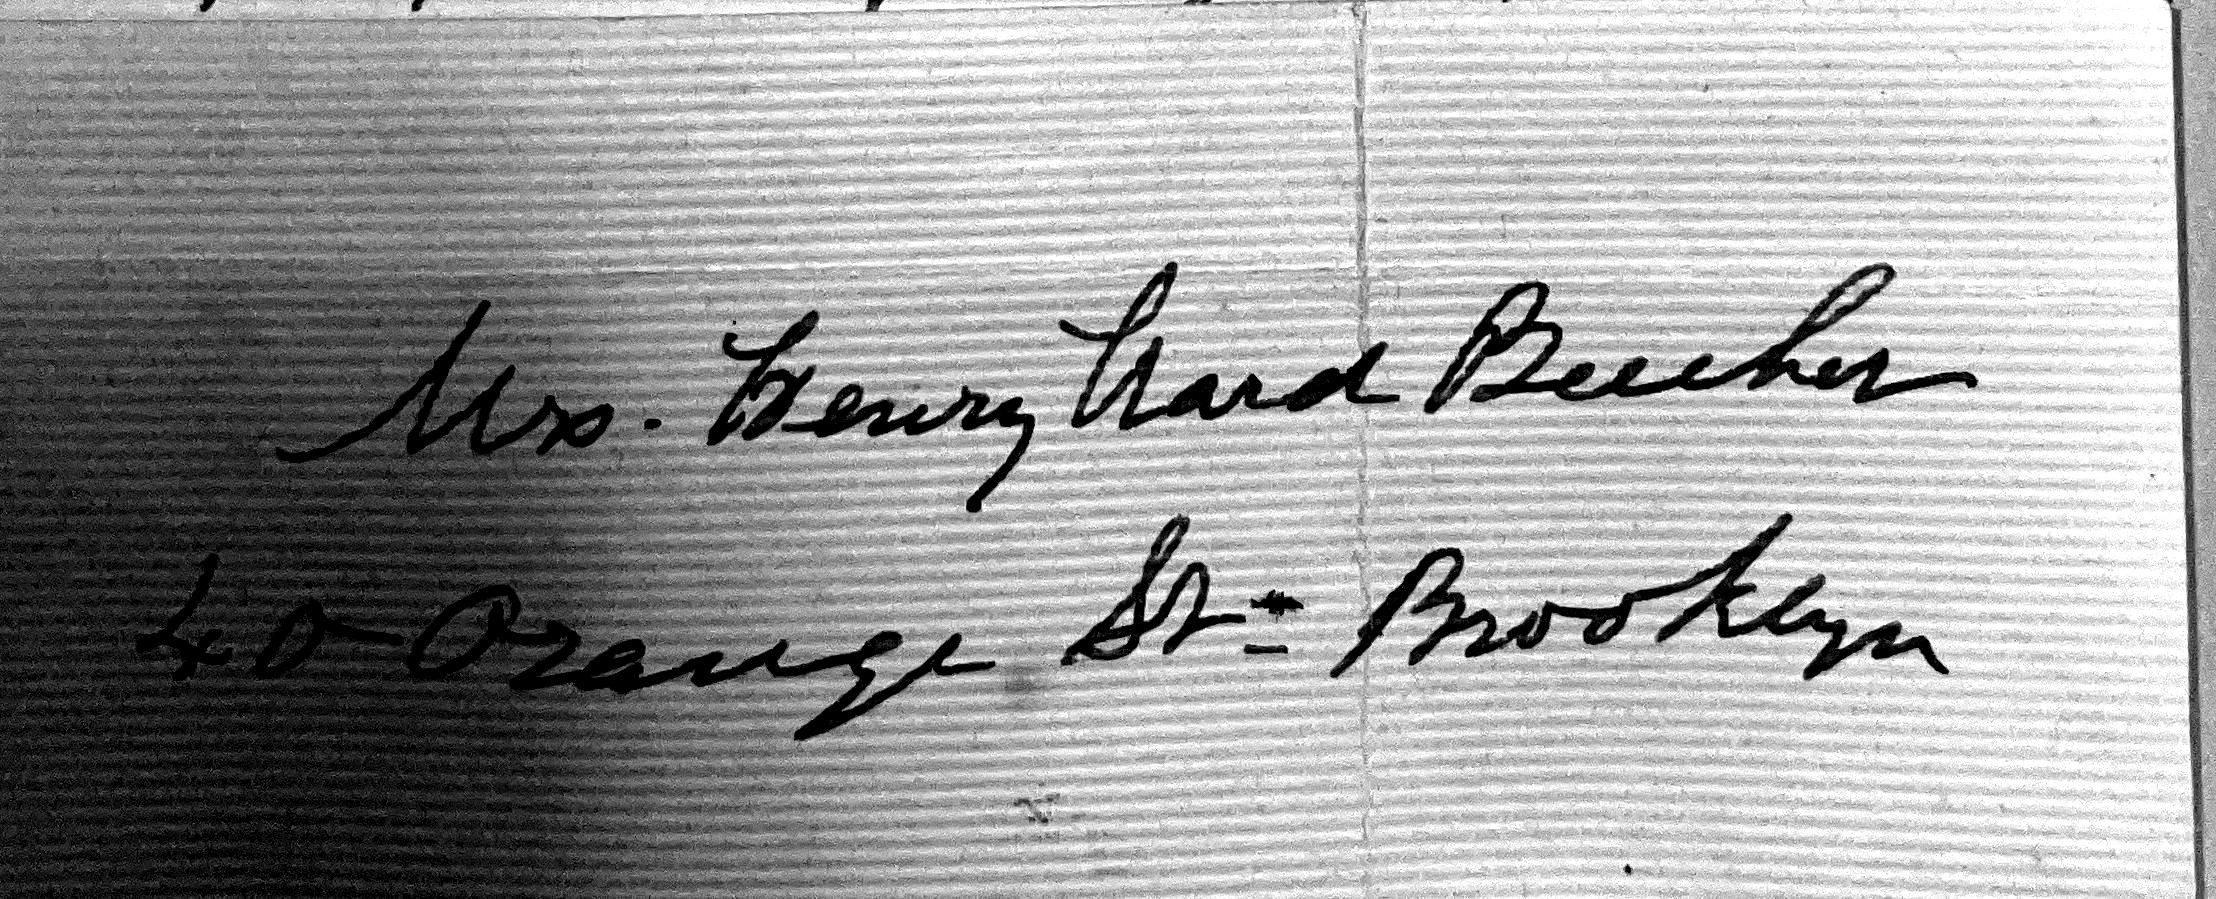 Mrs. Henry Ward Beecher
40 Orange St= Brooklyn